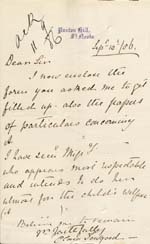 Paxton Hill,
St Neots
Sept 12/06.
Dear Sir
I now enclose the
form you asked me to get
filled up. also the papers
of particulars concerning
it
I have seen
who appears most respectable
and intends to do her
utmost for the child's welfare
Believe me to remain
Yrs faithfully